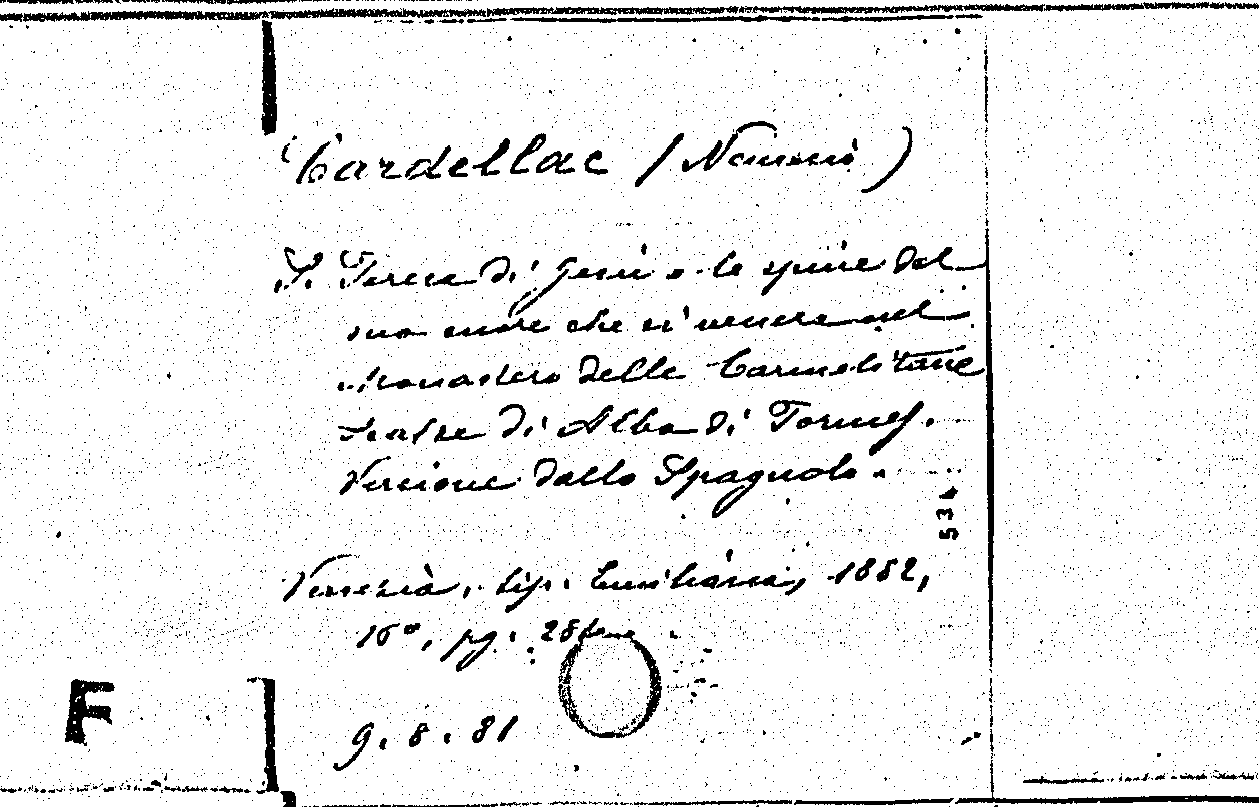 Cardellac (Nemesio)
S. Teresa di Gesù e le spine del
suo cuore che si venera nel
Monastero delle Carmelitane
Scalze di Alba di Tormes.
Versione dallo Spagnolo.
534
Venezia, tip. Emiliana, 1882,
16°, pg. 28
9. 8. 81
F